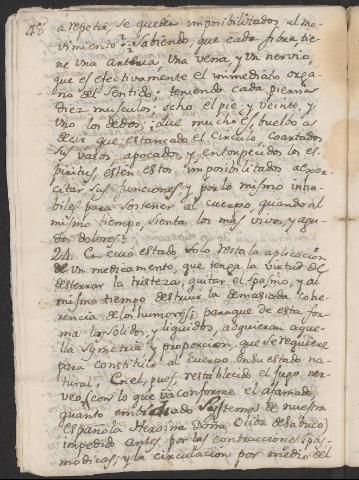 48
a repetir, se queden imposibilitados al mo-
vimiento? Sabiendo, que cada fibra tie-
ne una arteria, una vena, y un nervio,
que es efectivamente el immediato orga-
no del sentido; teniendo cada pierna
diez musculos, ocho el pie, y veinte, y
uno los dedos; que mucho es, buelvo a
decir que estancado el circulo, coartados
sus vasos, apocados, y entorpecidos los es-
piritus, esten estos imposibilitados a exer-
citar sus funciones, y por lo mismo inha-
biles para sostener al cuerpo quando al
mismo tiempo, sienta los mas vivos, y agu-
dos dolores?
24. En cuio estado, solo resta la aplicacion
de un medicamento, que tenga la virtud de
desterrar la tristeza, quitar el spasmo, y al
mismo tiempo destruir la demasiada cohe-
rencia de los humores; para que de esta for-
ma los solidos, y liquidos, adquieran aque-
lla symetria, y proporcion, que se requiere
para constituir al cuerpo en su estado na-
tural. Cret, pues, restablecido el jugo ner-
veo (con lo que va conforme el afamado,
quanto Systemos de nuestra
española Heroina doña Oliva de Sabuco)
impedido antes por las contracciones spas-
modicas, y la circulacion por medio del